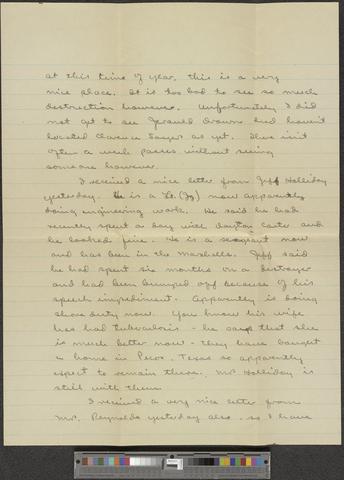 at this time of year, this is a very
nice place. It is too bad to see so much
destruction however. Unfortunately I did
not get to see Jerauld Drown and haven't
located Clarence Sawyer as yet. There isn't
often a week passes without seeing
someone however.
I received a nice letter from Jeff Holliday
yesterday. He is a Lt. (Jg) now apparently
doing engineering work. He said he had
recently spent a day with Carter and
he looked fine. He is a seargant now
and has been in the Marshalls. Jeff said
he had spent six months on a destroyer
and had been bumped off because of his
speech impediment. Apparently is doing
shore duty now. You know his wife
has had tuberculosis - he says that she
is much better now - they have bought
a home in Pecos, Texas so apparently
expect to remain there. Mr Holliday is
still with them.
I received a very nice letter from
Mr. Reynolds yesterday also, so I have